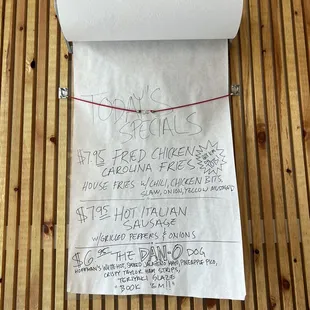 TODAY'S
SPECIALS
$7.95 FRIED CHICKEN
CAROLINA FRIES
HOUSE FRIES W/CHILI, CHICKEN BITS,
SLAW, ONION, YELLOW MUSTARD
$7.95 HOT ITALIAN
SAUSAGE
W/GRILLED PEPPERS & ONIONS
$6.95 THE DAN-O DOG
HOFFMAN'S WHITE HOT, JALAPENO MAYO, PINEAPPLE PICO,
CRISPY TAYLOR HAM STRIPS,
TERIYAKI GLAZE
"BOOK 'EM!!"